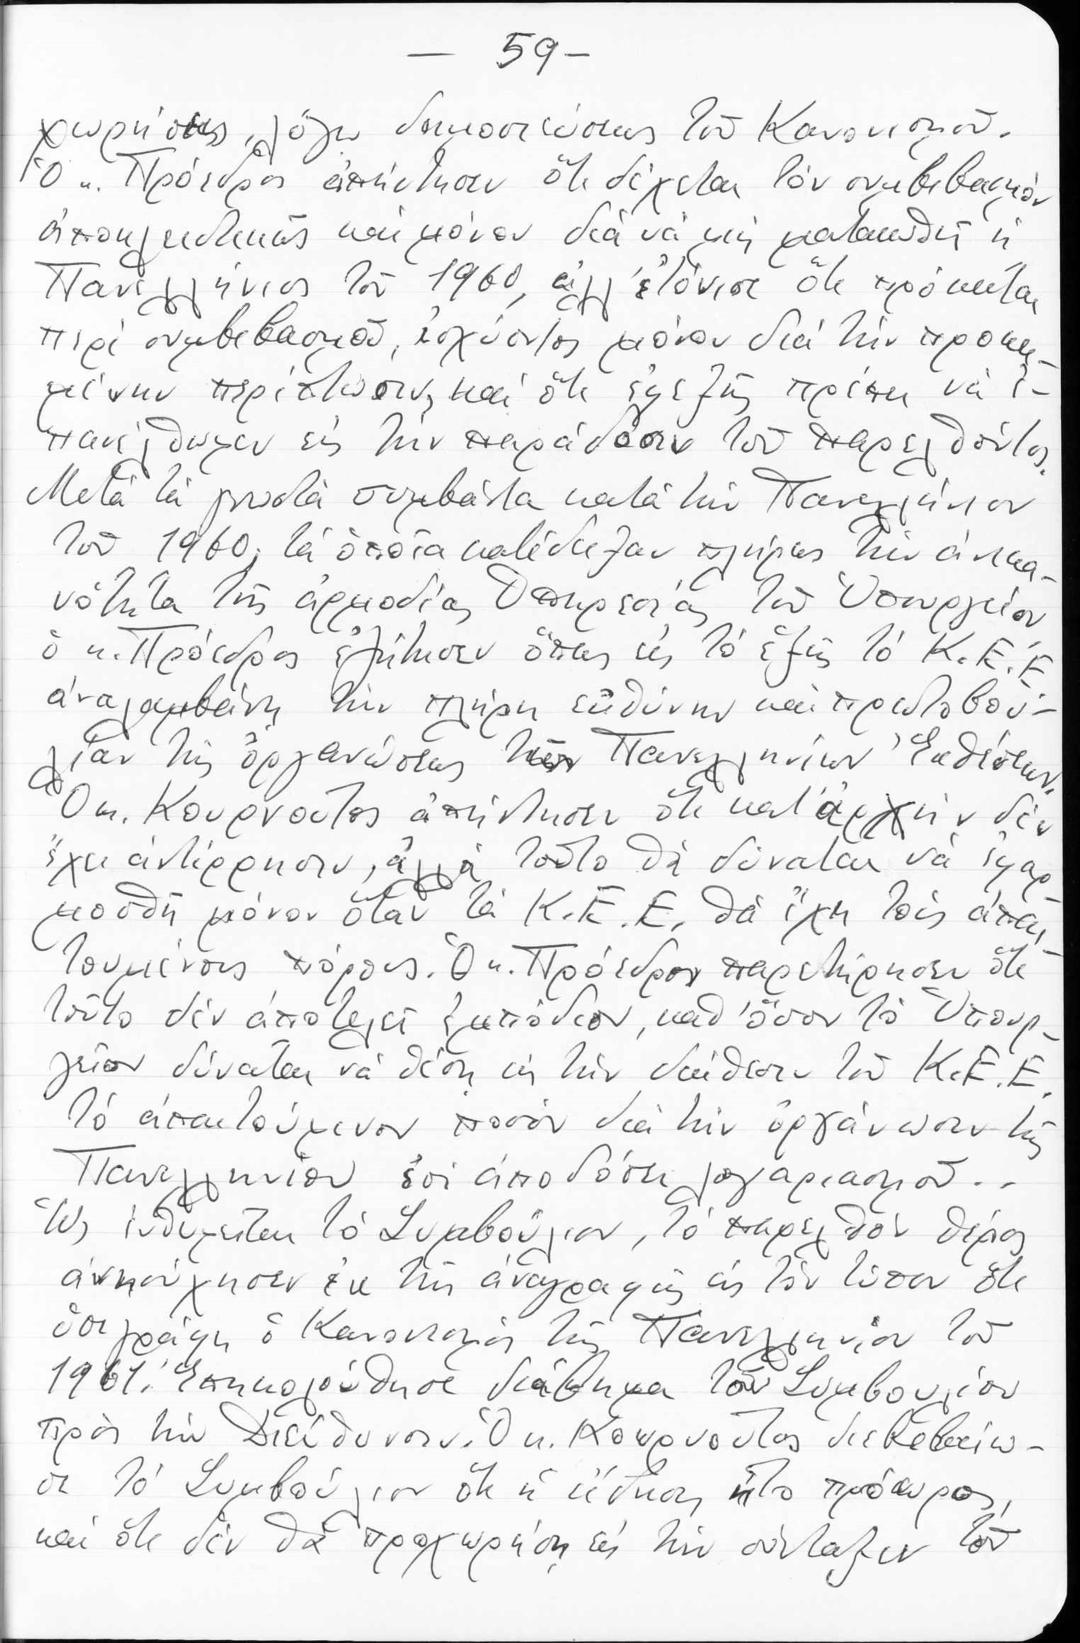 — 59 —
χωρήσεως, λόγῳ δημοσιεύσεως τοῦ Κανονισμοῦ.
Ὁ κ. Πρόεδρος ἀπήντησεν ὅτι δέχεται τόν συμβιβασμόν
ἀποκλειστικῶς καί μόνον διά νά μή ματαιωθῇ ἡ
Πανελλήνιος τοῦ 1960, ἀλλ' ἐτόνισε ὅτι πρόκειται
περί συμβιβασμοῦ, ἰσχύοντος μόνον διά τήν προκει-
μένην περίπτωσιν, καί ὅτι ἐφεξῆς πρέπει νά ἐ-
πανέλθωμεν εἰς τήν παράδοσιν τοῦ παρελθόντος.
Μετά τά γνωστά συμβάντα κατά τήν Πανελλήνιον
τοῦ 1960, τά ὁποῖα κατέδειξαν πλήρως τήν ἀνικα-
νότητα τῆς ἁρμοδίας Ὑπηρεσίας τοῦ Ὑπουργείου
ὁ κ. Πρόεδρος ἐζήτησεν ὅπως εἰς τό ἑξῆς τό Κ.Ε.Ε
ἀναλαμβάνῃ τήν πλήρη εὐθύνην καί πρωτοβου-
λίαν τῆς ὀργανώσεως τῶν Πανελληνίων Ἐκθέσεων.
Ὁ κ. Κουρνοῦτος ἀπήντησεν ὅτι κατ' ἀρχήν δέν
ἔχει ἀντίρρησιν, ἀλλά τοῦτο θά δύναται νά ἐφαρ-
μοσθῇ μόνον ὅταν τό Κ.Ε.Ε. θά ἔχῃ τούς ἀπαι-
τουμένους πόρους. Ὁ κ. Πρόεδρος παρετήρησεν ὅτι
τοῦτο δέν ἀποτελεῖ ἐμπόδιον, καθ' ὅσον τό Ὑπουρ-
γεῖον δύναται νά θέσῃ εἰς τήν διάθεσιν τοῦ Κ.Ε.Ε.
τό ἀπαιτούμενον ποσόν διά τήν ὀργάνωσιν τῆς
Πανελληνίου ἐπί ἀποδόσει λογαριασμοῦ..
Ὡς ἐνθυμεῖται τό Συμβούλιον, τό παρελθόν θέρος
ἀνησύχησεν ἐκ τῆς ἀναγραφῆς εἰς τόν τύπον ὅτι
ὑπεγράφη ὁ Κανονισμός τῆς Πανελληνίου τοῦ
1961. Ἐπηκολούθησε διάβημα τοῦ Συμβουλίου
πρός τήν Διεύθυνσιν. Ὁ κ. Κουρνοῦτος διεβεβαίω-
σε τό Συμβούλιον ὅτι ἡ εἴδησις ἦτο πρόωρος,
καί ὅτι δέν θά προχωρήσῃ εἰς τήν σύνταξιν τοῦ